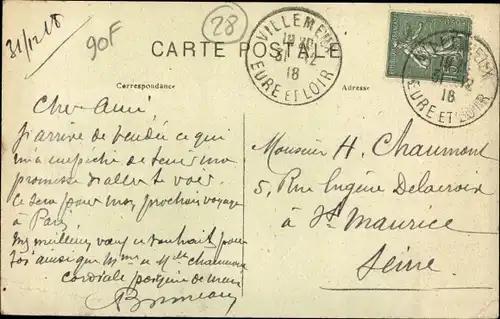 31/12 18
90F
28
CARTE POSTALE
VILLEMEUX
31-12
18
EURE ET LOIR
VILLEMEUX
18
EURE ET LOIR
15
Correspondance
Adresse
Cher Ami
J'arrive de Vendée ce qui
m'a empêché de tenir ma
promesse d'aller te voir
ce sera pour mon prochain voyage
à Paris
Mes meilleurs vœux et souhait pour
toi ainsi que Mme et Mlle Chaumont
Cordiale poignée de main
Monsieur H. Chaumont
5, Rue Eugène Delacroix
à St. Maurice
Seine